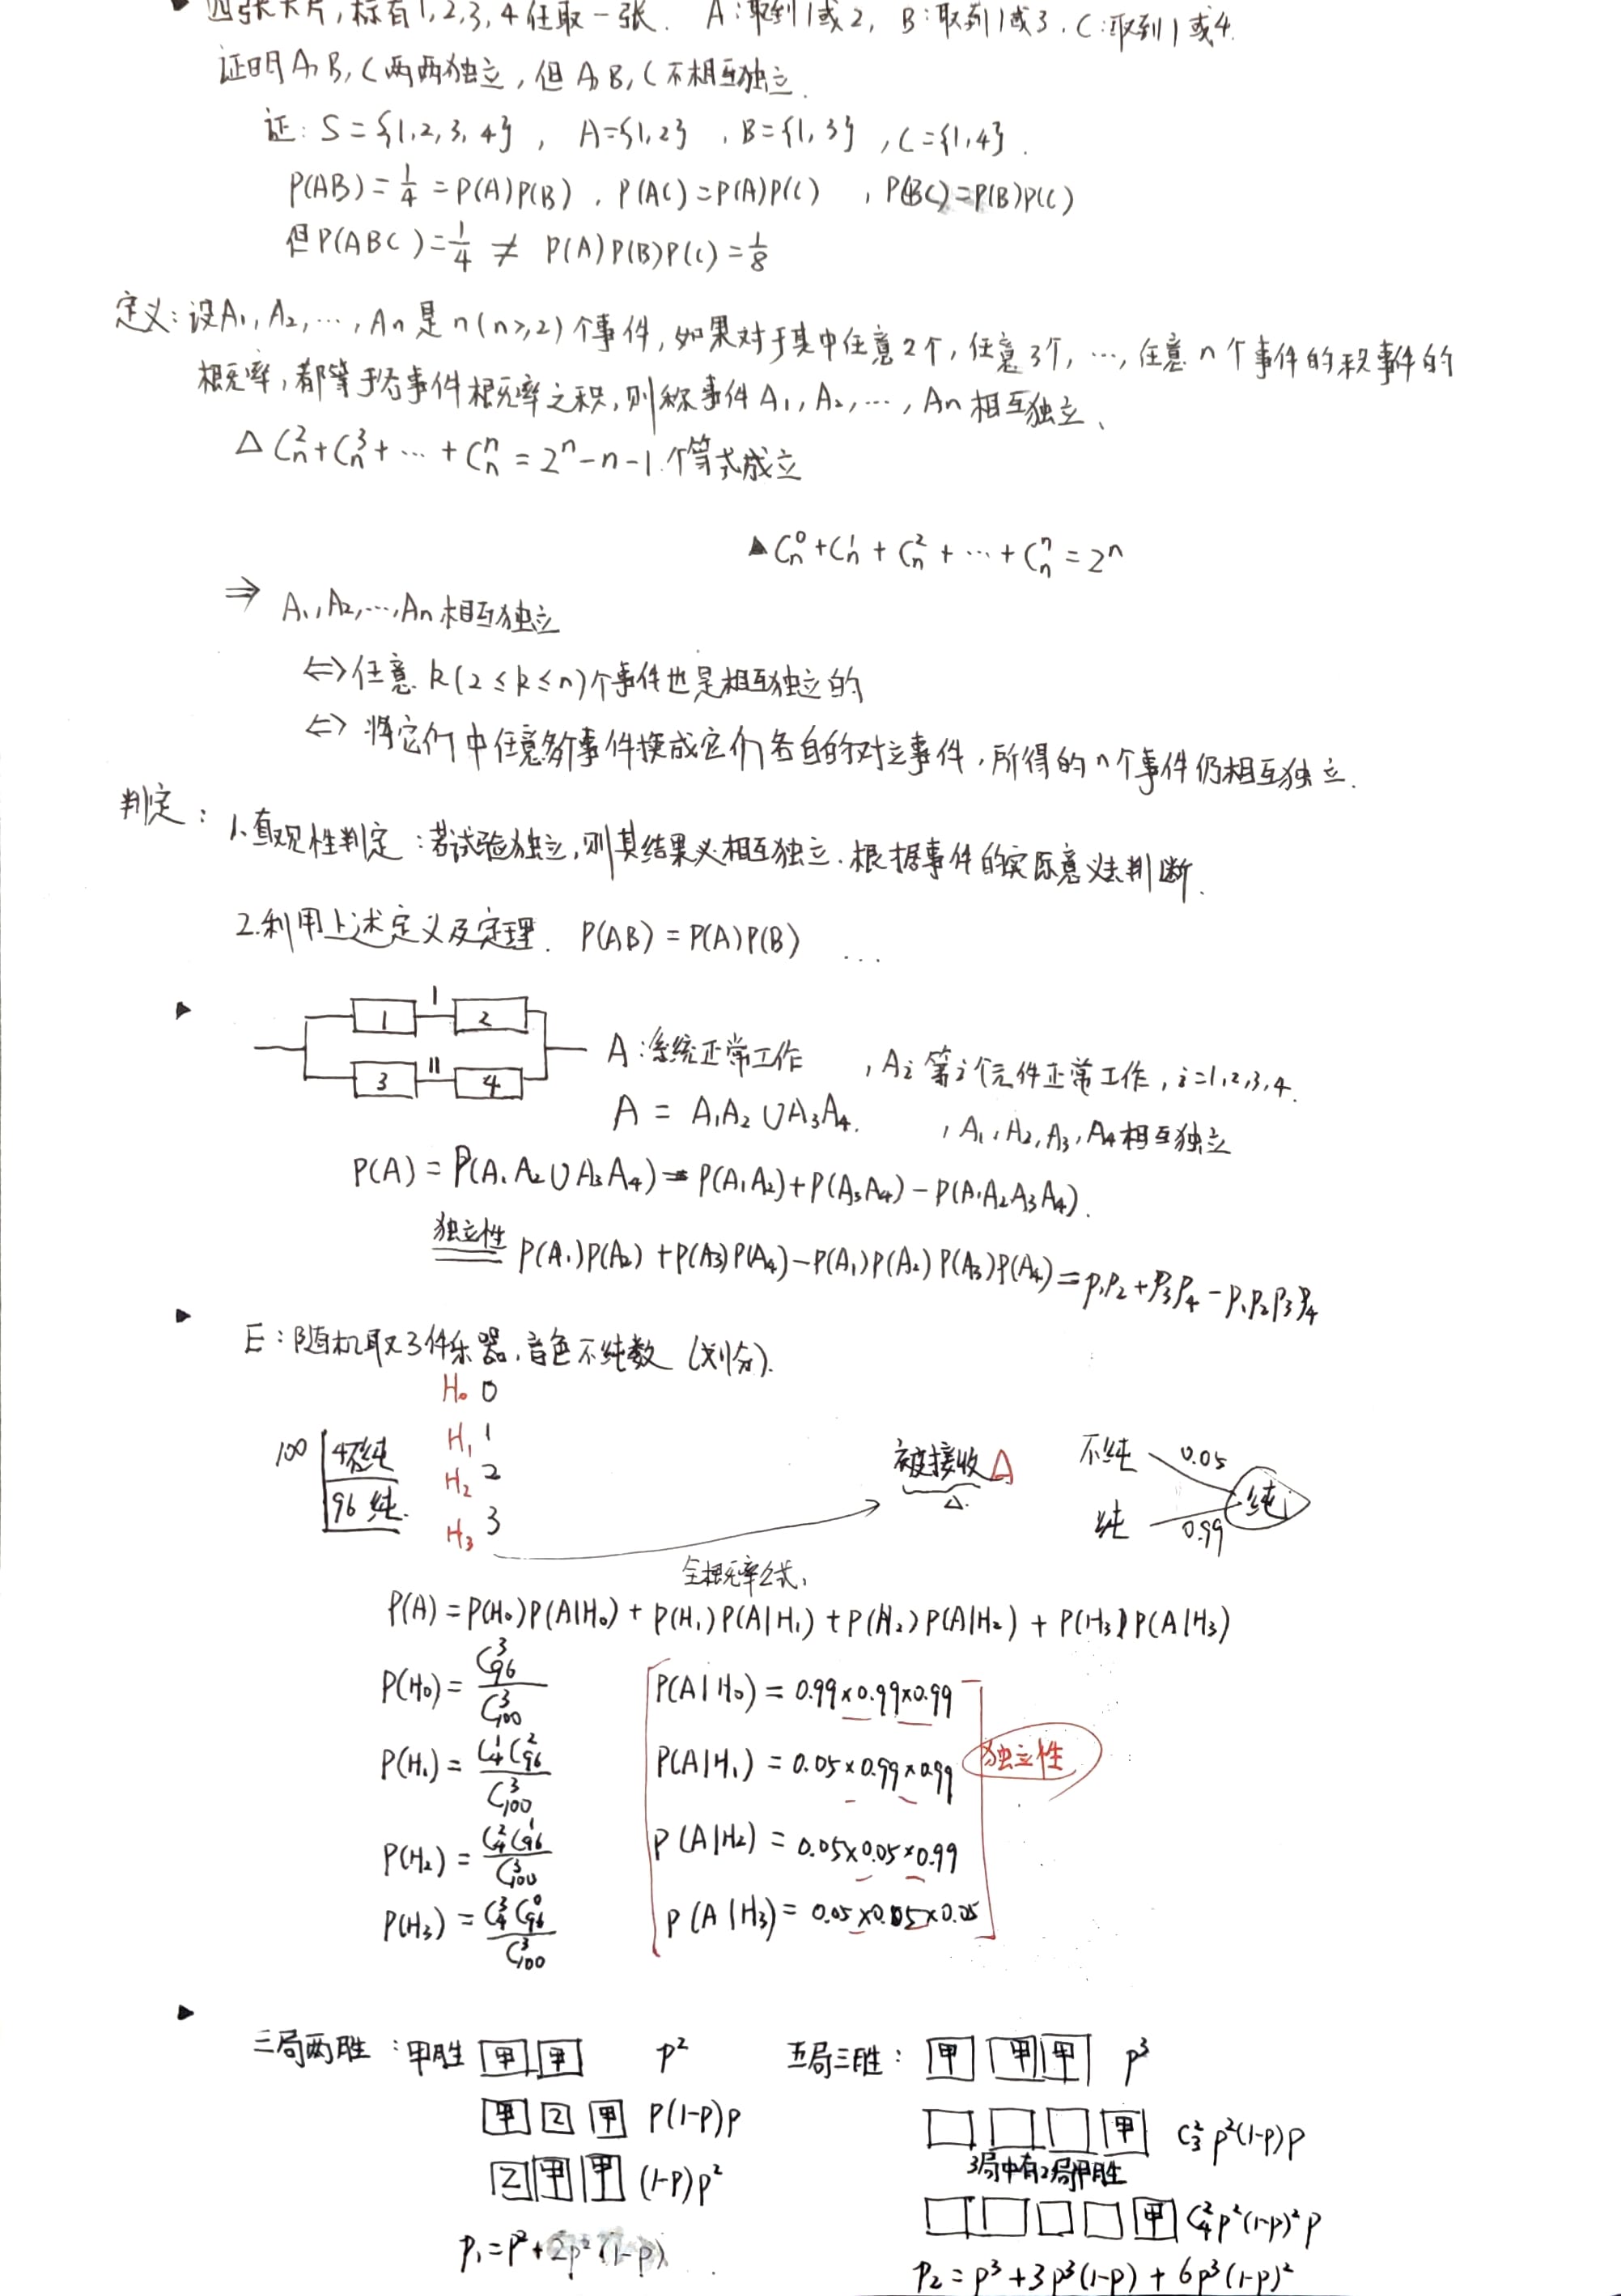 ▸ 四张卡片,标有1,2,3,4任取一张. A:取到1或2, B:取到1或3, C:取到1或4.
证明A,B,C两两独立,但A,B,C不相互独立.
证: S={1,2,3,4}, A={1,2}, B={1,3}, C={1,4}.
P(AB)=1/4=P(A)P(B), P(AC)=P(A)P(C), P(BC)=P(B)P(C)
但P(ABC)=1/4≠P(A)P(B)P(C)=1/8
定义:设A₁,A₂,…,Aₙ是n(n≥2)个事件,如果对于其中任意2个,任意3个,…,任意n个事件的积事件的
概率,都等于各事件概率之积,则称事件A₁,A₂,…,Aₙ相互独立、
△ Cₙ²+Cₙ³+…+Cₙⁿ=2ⁿ-n-1.个等式成立
▲Cₙ⁰+Cₙ¹+Cₙ²+…+Cₙⁿ=2ⁿ
⇒ A₁,A₂,…,Aₙ相互独立
⇔任意k(2≤k≤n)个事件也是相互独立的
⇔ 将它们中任意多个事件换成它们各自的对立事件,所得的n个事件仍相互独立.
判定:
1.直观性判定:若试验独立,则其结果必相互独立.根据事件的实际意义去判断.
2.利用上述定义及定理. P(AB)=P(A)P(B) …
▸ 1 I 2
3 II 4
A:系统正常工作 ,Aᵢ第i个元件正常工作,i=1,2,3,4.
A=A₁A₂∪A₃A₄. ,A₁,A₂,A₃,A₄相互独立
P(A)=P(A₁A₂∪A₃A₄)=P(A₁A₂)+P(A₃A₄)-P(A₁A₂A₃A₄).
独立性 P(A₁)P(A₂)+P(A₃)P(A₄)-P(A₁)P(A₂)P(A₃)P(A₄)=p₁p₂+p₃p₄-p₁p₂p₃p₄
▸ E:随机取3件乐器,音色不纯数(划分).
H₀ 0
H₁ 1
H₂ 2
H₃ 3
100 4不纯
96 纯.
被接收A
△.
不纯 0.05
纯 0.99
纯
全概率公式,
P(A)=P(H₀)P(A|H₀)+P(H₁)P(A|H₁)+P(H₂)P(A|H₂)+P(H₃)P(A|H₃)
P(H₀)=C₉₆³/C₁₀₀³ P(A|H₀)=0.99×0.99×0.99
P(H₁)=C₄¹C₉₆²/C₁₀₀³ P(A|H₁)=0.05×0.99×0.99 独立性
P(H₂)=C₄²C₉₆¹/C₁₀₀³ P(A|H₂)=0.05×0.05×0.99
P(H₃)=C₄³C₉₆⁰/C₁₀₀³ P(A|H₃)=0.05×0.05×0.05
▸ 三局两胜:甲胜 甲 甲 p²
甲 乙 甲 p(1-p)p
乙 甲 甲 (1-p)p²
p₁=p²+2p²(1-p)
五局三胜: 甲 甲 甲 p³
甲 C₃²p²(1-p)p
3局中有2局甲胜
甲 C₄²p²(1-p)²p
p₂=p³+3p³(1-p)+6p³(1-p)²